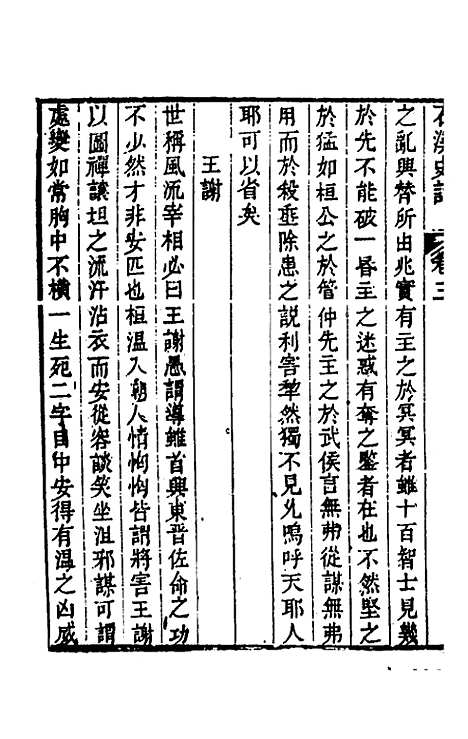 石溪史話 卷三
之亂興替所由兆實有主之於冥冥者雖十百智士見幾
於先不能破一昏主之迷惑有奪之鑒者在也不然堅之
於猛如桓公之於管仲先主之於武侯言無弗從謀無弗
用而於殺垂除患之説利害犂然獨不見允嗚呼天耶人
耶可以省矣
王謝
世稱風流宰相必曰王謝愚謂導雖首興東晉佐命之功
不少然才非安匹也桓温入朝人情恟恟皆謂將害王謝
以圖禪讓坦之流汗沾衣而安從容談笑坐沮邪謀可謂
處變如常胸中不橫一生死二字目中安得有温之凶威